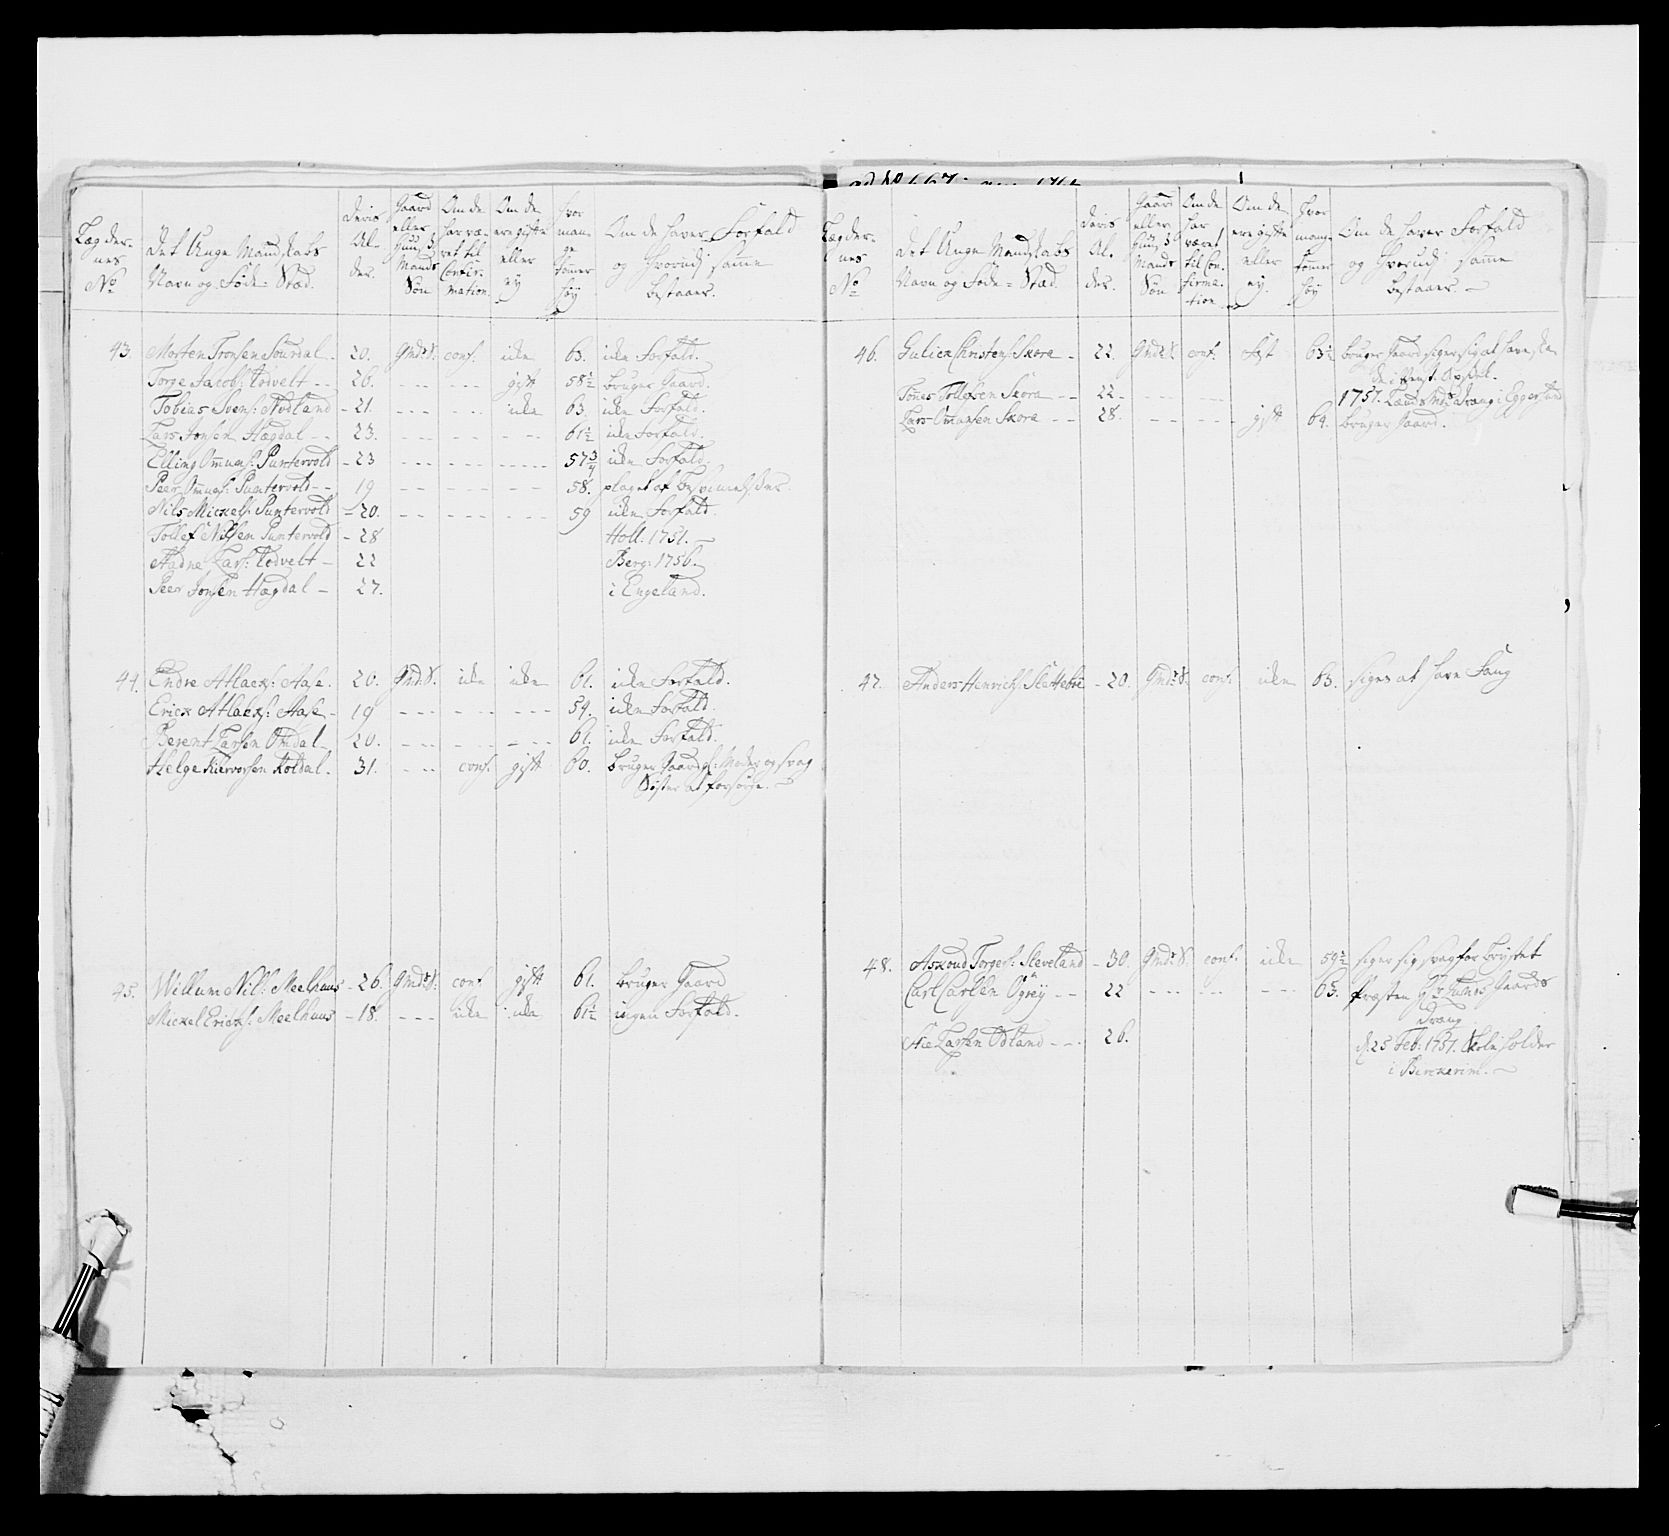 Lægder-
nes
No
Det Unge Mandskabs
Navn og Føde-Stæd.
Deris
Al-
der.
Gaard
eller
Huus
Mands
Søn
Om de
har væ-
ret til
Confir-
mation
Om de
ere gifte
eller
ey
Hvor
man-
ge
Tomer
høy
Om de haver Forfald
og hvorudj samme
bestaaer.
43. Morten Tronsen Sourdal - 20. Gmds S: conf. icke 63. icke Forfald.
Torge Jacobs: Todvelt - - 26. - - - - - gift 58½ bruger Gaard.
Tobias Svens: Aadland - 21. - - - - - icke 63. icke Forfald.
Lars Jonsen Hægdal - - 23. - - - - - - - 61½ icke Forfald.
Elling Omunds: Puntervold - 23 - - - - - - - 57¾ icke Forfald.
Peer Omunds: Puntervold - - 19 - - - - - - - 58. plaget af besvimelser.
Nils Mickels: Puntervold - 20. - - - - - - - 59 icke Forfald.
Tollef Nilsen Puntervold - 28 Holl: 1751. -
Aadne Lars: Todvelt - 22 Berg: 1756.
Peer Jonsen Hægdal - 27. i Engeland.
44. Endre Atlacks: Aase. 20. Gmd: S. icke icke 61. icke Forfald.
Erick Atlacks: Aase - 19 - - - - - - - 59. icke Forfald.
Berent Larsen Omdal - 20. - - - - - - - 61. icke Forfald.
Helge Kiervorsen Koldal. 31. - - - conf. gift 60. bruger Gaard gl: Moder og svag
Søster at forsørge. -
45. Willum Nils: Meelhuus - 26. Gmds S: conf. gift 61. bruger Gaard
Mickel Ericks: Meelhuus - 18. - - - icke icke 61½ ingen Forfald.
Lægder-
nes
No
Det Unge Mandskabs
Navn og Føde-Stæd.
Deris
Al-
der.
Gaard
eller
Huus
Mands
Søn
Om de
har
været
til Con-
firma-
tion
Om de
ere gifte
eller
ey.
Hvor
mange
Tomer
høy
Om de haver Forfald
og hvorudj samme
bestaaer. -
46. Gulick Christens: Skore - 22. Gmds S. conf. gift 63½ bruger Gaard siger sig at have ska-
de i
Tønes Tollefsen Skore - - 22 - - - - - 1757. Lænds Mds dræng i Eggersund
Lars Omansen Skore - - 28. - - - - gift 64. bruger Gaard.
47. Anders Henrichs: Slettebøe - 20. Gmds S. conf. icke 63. siges at have Fang
48. Askoud Torgers: Sleveland - 30. Gmds S. conf. icke 59½ siger sig svag for brystet
Carl Carlsen Øgrey - - 22 - - - - - - - 65. Præsten Hr Gaards
dræng
Aie Larsen Odland - - 26. d. 25 Feb: 1757. Skoleholder
i Birckerim. -